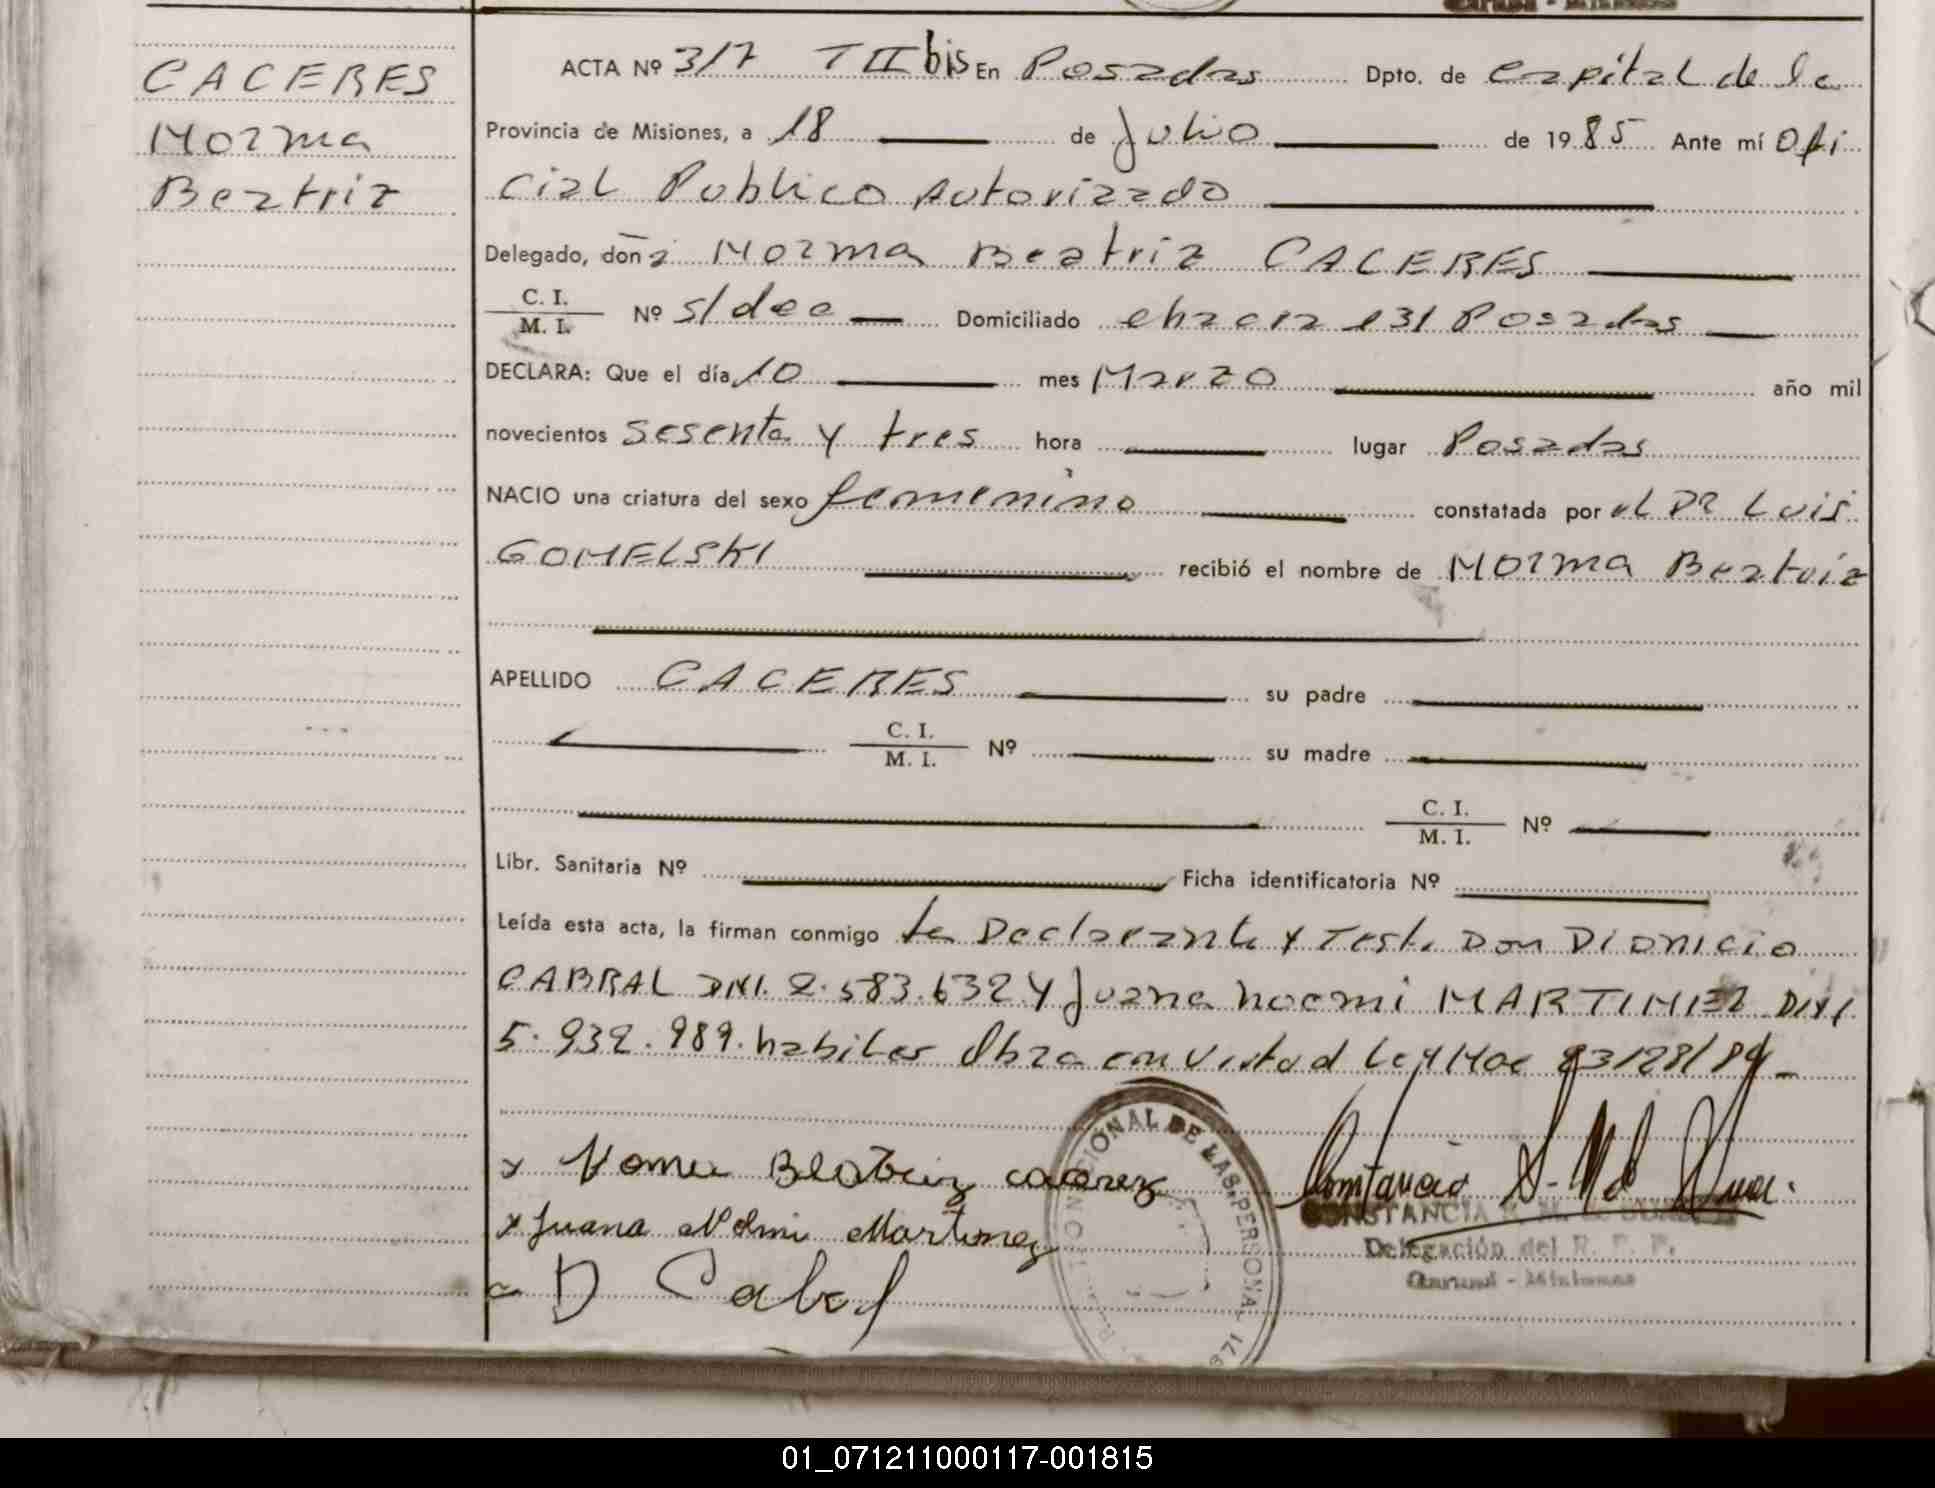 CACERES
Norma
Beatriz
ACTA Nº 317 T II bis En Posadas Dpto. de capital de la
Provincia de Misiones, a 18 de Julio de 1985 Ante mí Ofi
cial Publico Autorizado
Delegado, doña Norma Beatriz CACERES
C. I.
M. I. Nº s/doc Domiciliado chacra 131 Posadas
DECLARA: Que el día 10 mes Marzo año mil
novecientos sesenta y tres hora lugar Posadas
NACIO una criatura del sexo femenino constatada por el Dr Luis
GOMELSKI recibió el nombre de Norma Beatriz
APELLIDO CACERES su padre
C. I.
M. I. Nº su madre
C. I.
M. I. Nº
Libr. Sanitaria Nº Ficha identificatoria Nº
Leída esta acta, la firman conmigo la Declarante y Test. Don Dionicio
CABRAL DNI. 2.583.632 y Juana Noemi MARTINEZ DNI
5.932.989. habiles Obra en Vistad Ley Nac 23/28/84
x Norma Beatriz caceres
x Juana Noemi Martinez
D Cabral
NACIONAL DE LAS PERSONAS
CONSTANCIA
Delegación del R. P. P.
- Misiones
01_071211000117-001815